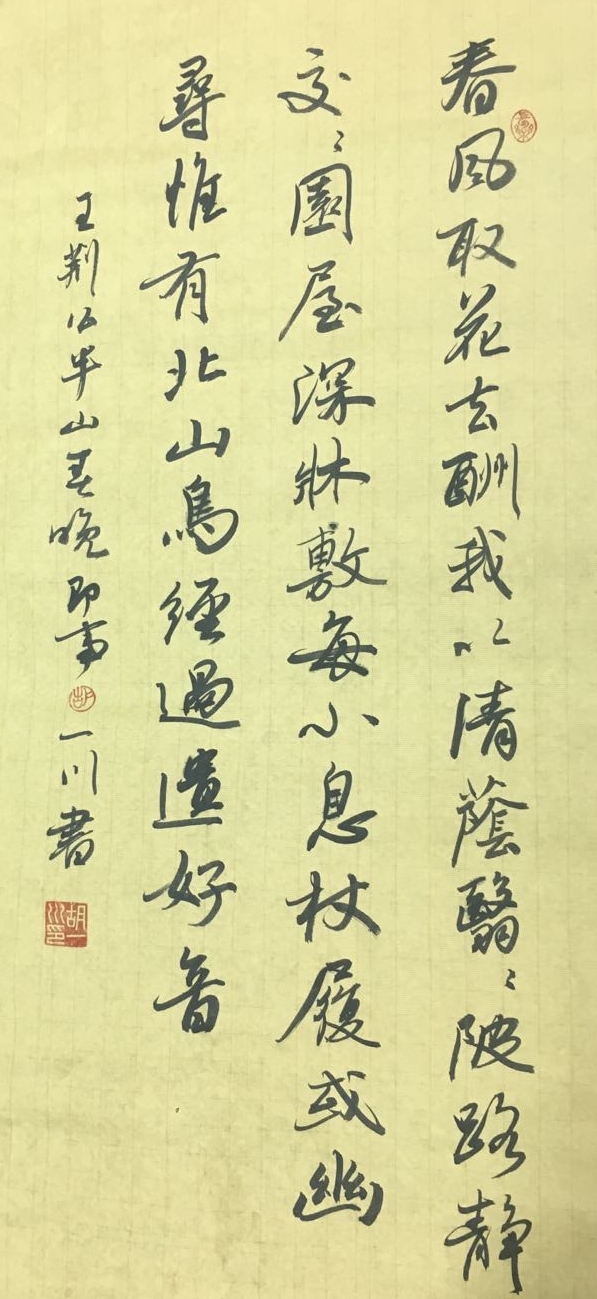 春风取花去酬我以清蔭翳〻陂路静
交〻園屋深牀敷每小息杖履或幽
尋惟有北山鳥經過遺好音
王荆公半山春晚即事 胡 一川書
胡一川印